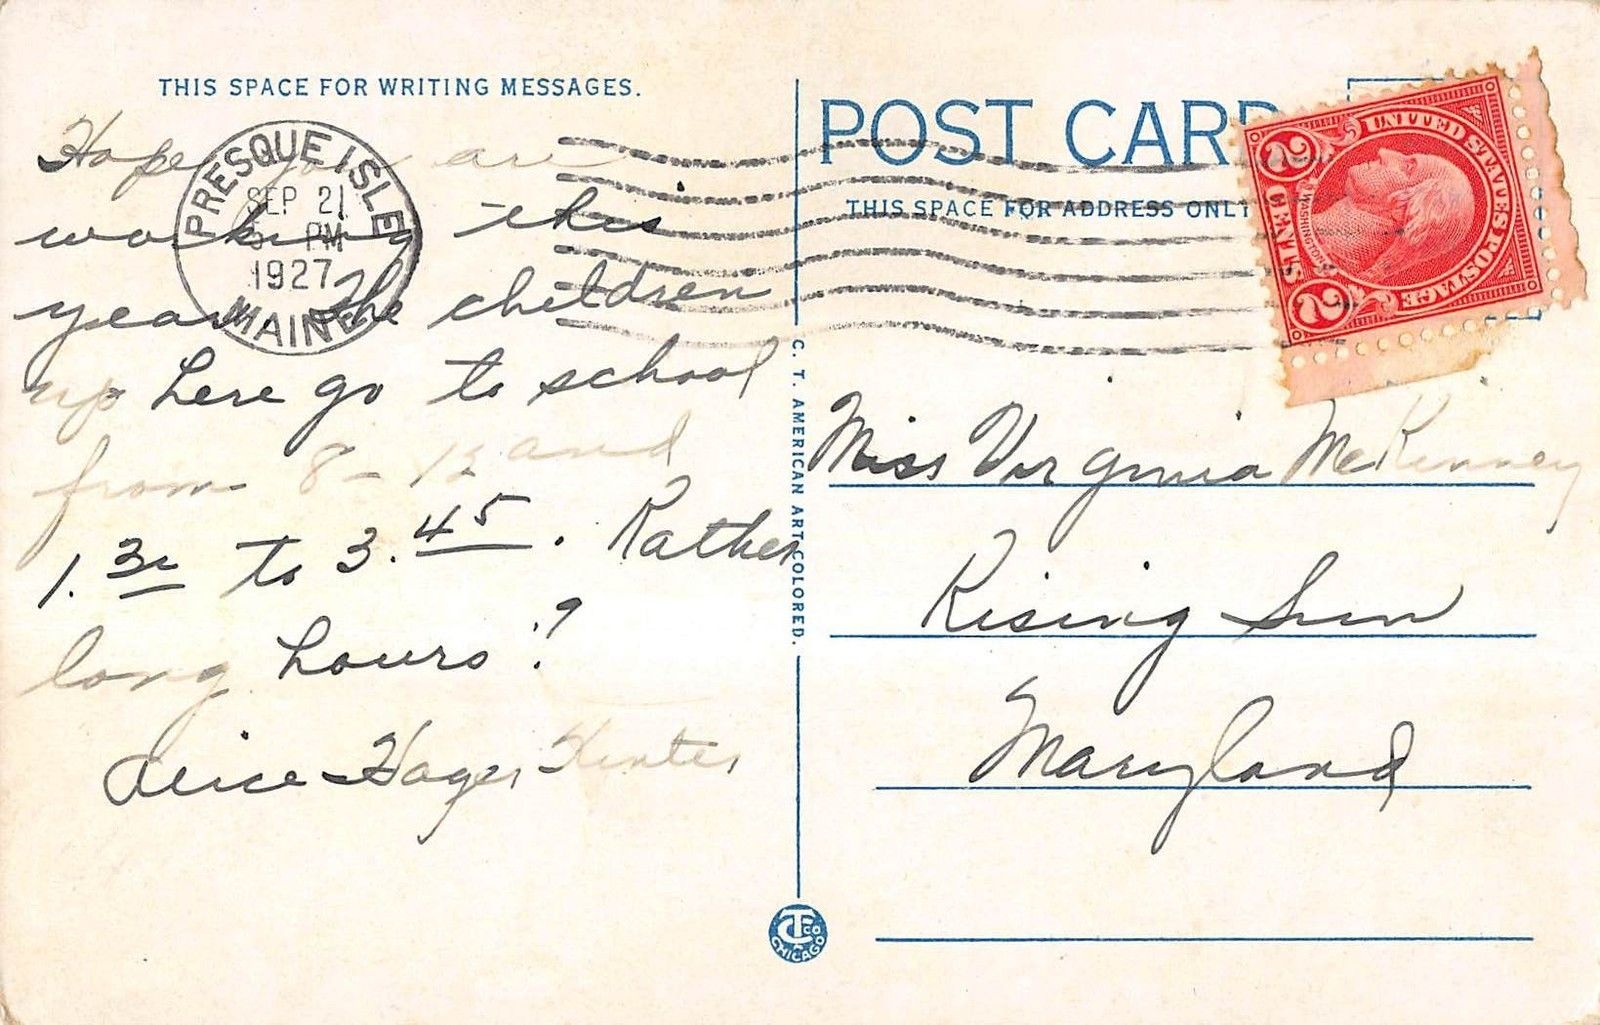 THIS SPACE FOR WRITING MESSAGES.
Hope you are
working this
year. The children
up here go to school
from 8 - 12 and
1.30 to 3.45. Rather
long hours?
Alice Hager
PRESQUE ISLE
SEP 21
PM
1927
MAINE
C. T. AMERICAN ART COLORED.
CT CO
CHICAGO
POST CARD
THIS SPACE FOR ADDRESS ONLY
UNITED STATES POSTAGE
WASHINGTON
2 CENTS 2
Miss Virginia McKinney
Rising Sun
Maryland